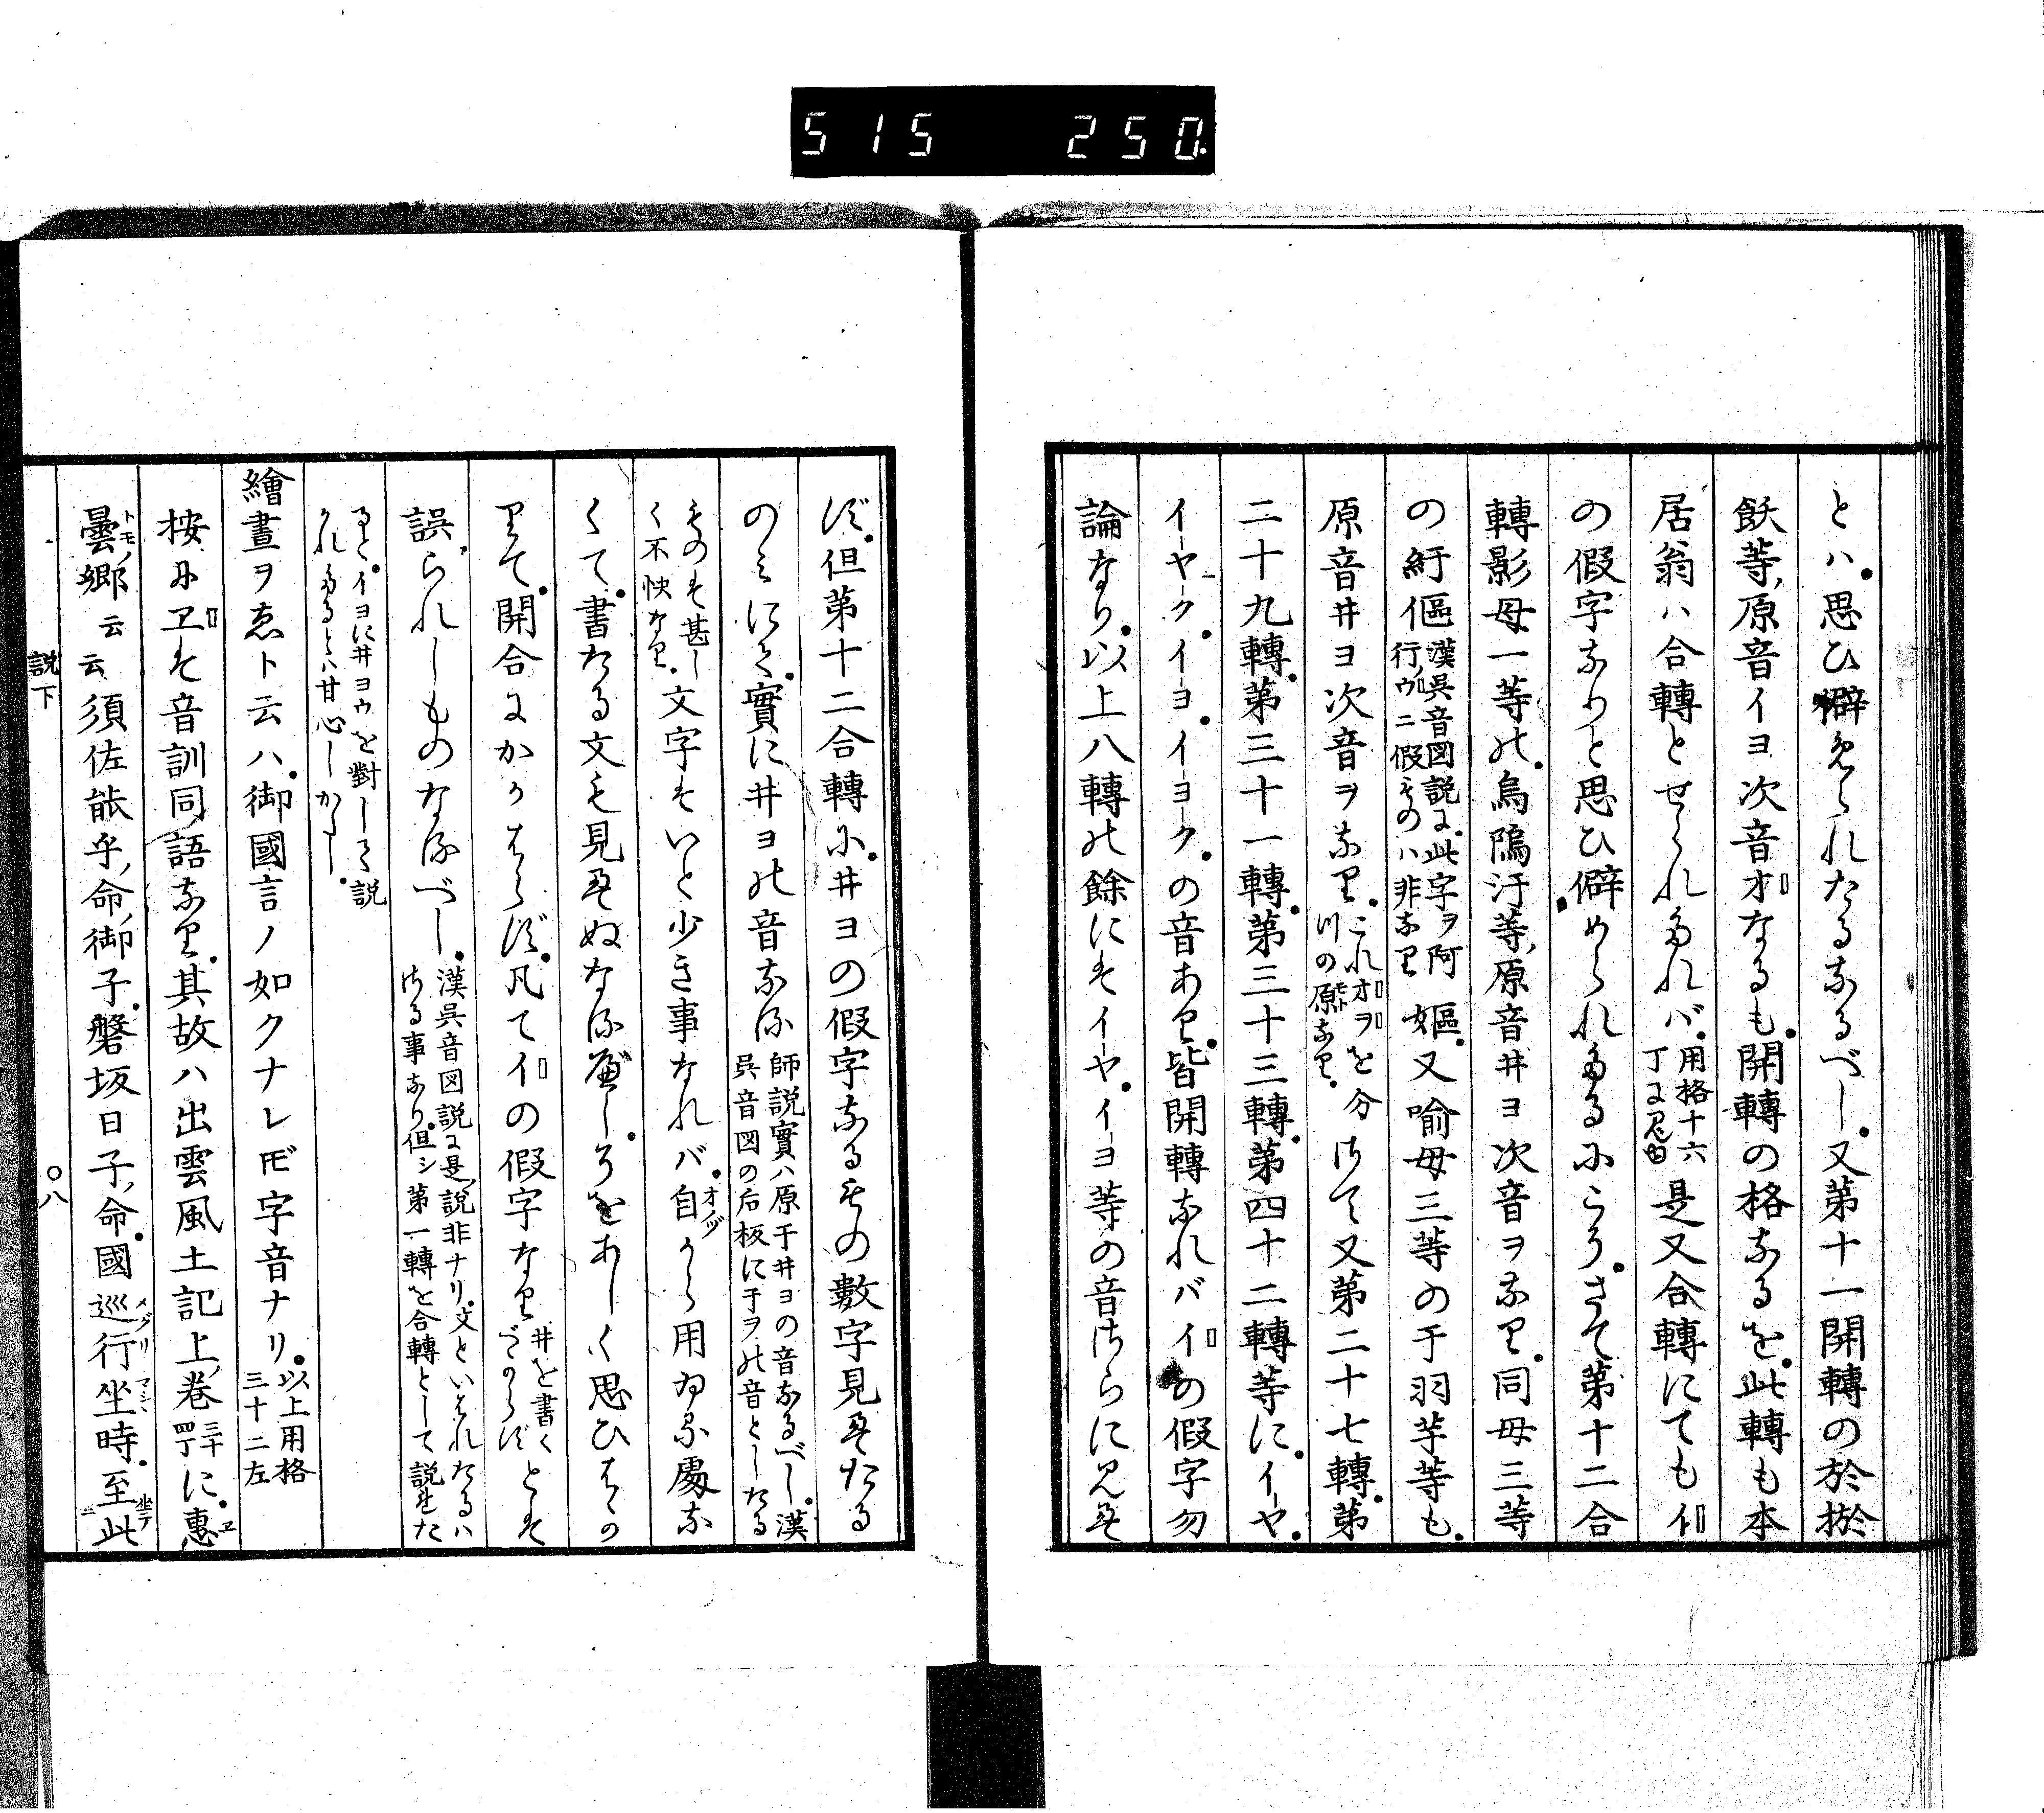 515 250
とハ思ひ僻められたるなるべし又第十一開轉の於菸
飫等原音イヨ次音オなるも開轉の格なるを此轉も本
居翁ハ合轉とせられたれバ用格十六丁に見ゆ是又合轉にてもイ
の假字なりと思ひ僻められたるにこそさて第十二合
轉影母一等の烏隖汙等原音ヰヨ次音ヲなり同母三等
の紆傴漢呉音図説に此字ヲ阿行ノウニ假ものハ非なり嫗又喩母三等の于羽芋等も
原音ヰヨ次音ヲなりこれオヲを分つの原なりさて又第二十七轉第
二十九轉第三十一轉第三十三轉第四十二轉等にイヤ
イヤクイヨイヨクの音あり皆開轉なれバイの假字勿
論なり以上八轉の餘にはイヤイヨ等の音さらに見え
ず但第十二合轉にヰヨの假字なるもの數字見えたる
のみにて實にヰヨの音なる師説實ハ原于ヰヨの音なるべし漢呉音図の后板に于ヲの音としたる
ものは甚しく不快なり文字はいと少き事なれバ自から用ゐる處な
くて書たる文も見えぬなるべしそをあしく思ひはか
りて開合にかゝはらず凡てイの假字なりヰを書くとはべからず
誤られしものなるべし漢呉音図説に是説非ナリ文といはれたるハさる事なり但シ第一轉を合轉として説れた
るとイヨにヰヨウを對して説れたるとハ甘心しがたし
繪畫ヲゑト云ハ御國言ノ如クナレ𪜈字音ナリ以上用格三十二左
按にヱは音訓同語なり其故ハ出雲風土記上巻三十四丁に惠
曇郷云云須佐能乎命御子磐坂日子命國巡行坐時至坐テ此
説下 〇八